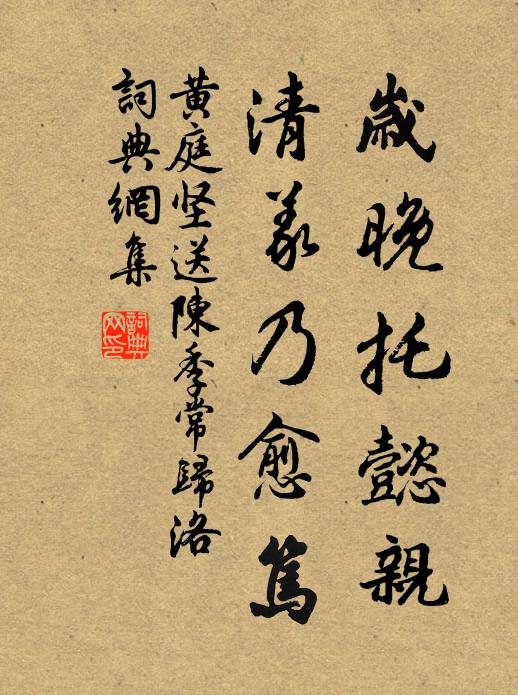 歲晚托懿親
清義乃愈篤
黄庭坚送陳季常歸洛
詞典網集
詞典網印